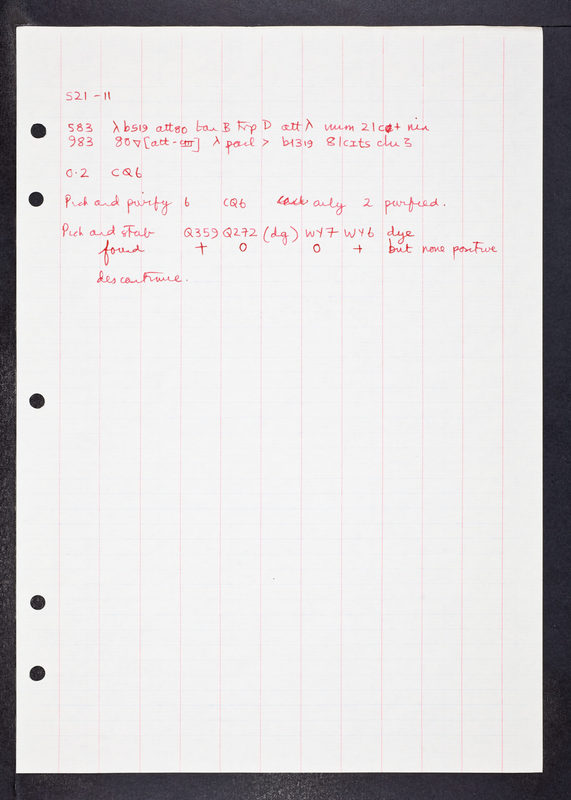 521-11
583 λ b519 att80 ton B trp D att λ imm 21 c + nin
983 80∇[att- ] λ > b1319 81cIts chi 3
0.2 CQ6
Pick and purify 6 CQ6 only 2 purified.
Pick and stab Q359 Q272 (dg) WY7 WY6 dye
found + 0 0 + but none positive
discontinue.